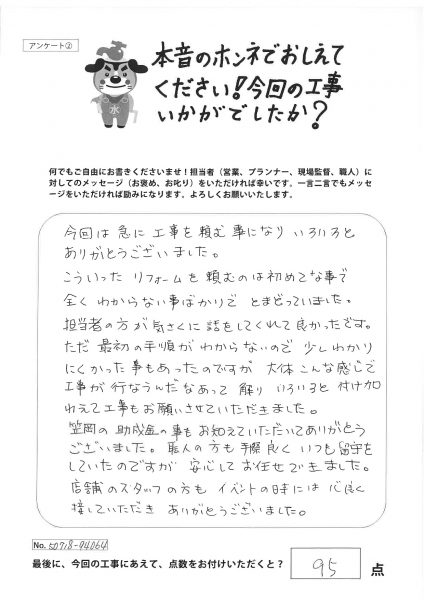 アンケート②
本音のホンネでおしえて
ください!今回の工事
いかがでしたか?
水
何でもご自由にお書きくださいませ!担当者（営業、プランナー、現場監督、職人）に
対してのメッセージ（お褒め、お叱り）をいただければ幸いです。一言二言でもメッセ
ージをいただければ励みになります。よろしくお願いいたします。
今回は急に工事を頼む事になり いろいろと
ありがとうございました。
こういった リフォームを 頼むのは初めてな事で
全く わからない事ばかりで とまどっていました。
担当者の方が気さくに話をしてくれて良かったです。
ただ 最初の手順が わからないので 少しわかり
にくかった事もあったのですが 大体こんな感じで
工事が行なうんだなあって 解り いろいろと 付け加
わえて工事もお願いさせていただきました。
笠岡の 助成金の事も お知えていただいてありがとう
ございました。職人の方も手際良く いつも留守を
していたのですが 安心して お任せできました。
店舗のスタッフの方も イベントの時には 心良く
接していただき ありがとうございました。
No. 50718-94064
最後に、今回の工事にあえて、点数をお付けいただくと? 95 点